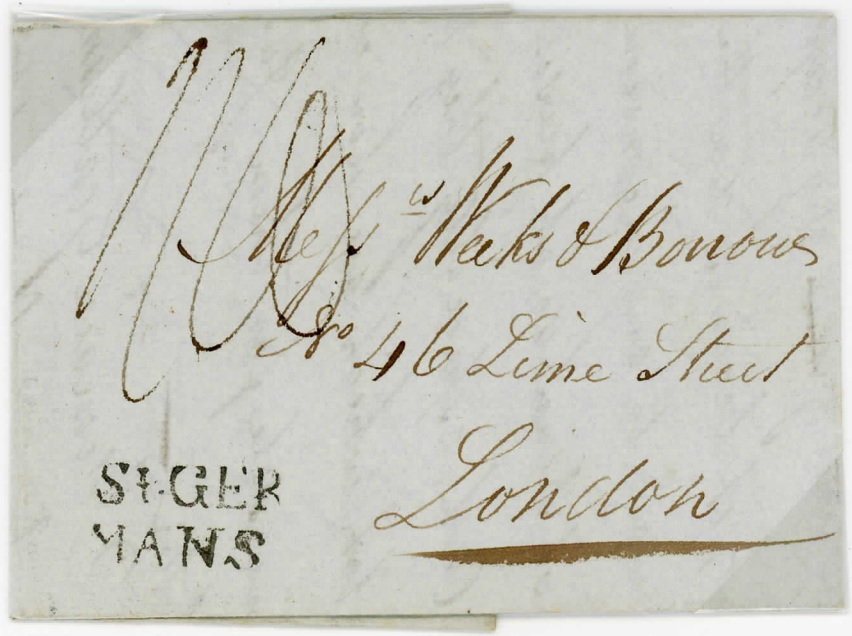 Mess.rs Weeks & Borrows
No 46 Lime Street
London
St. GER
MANS